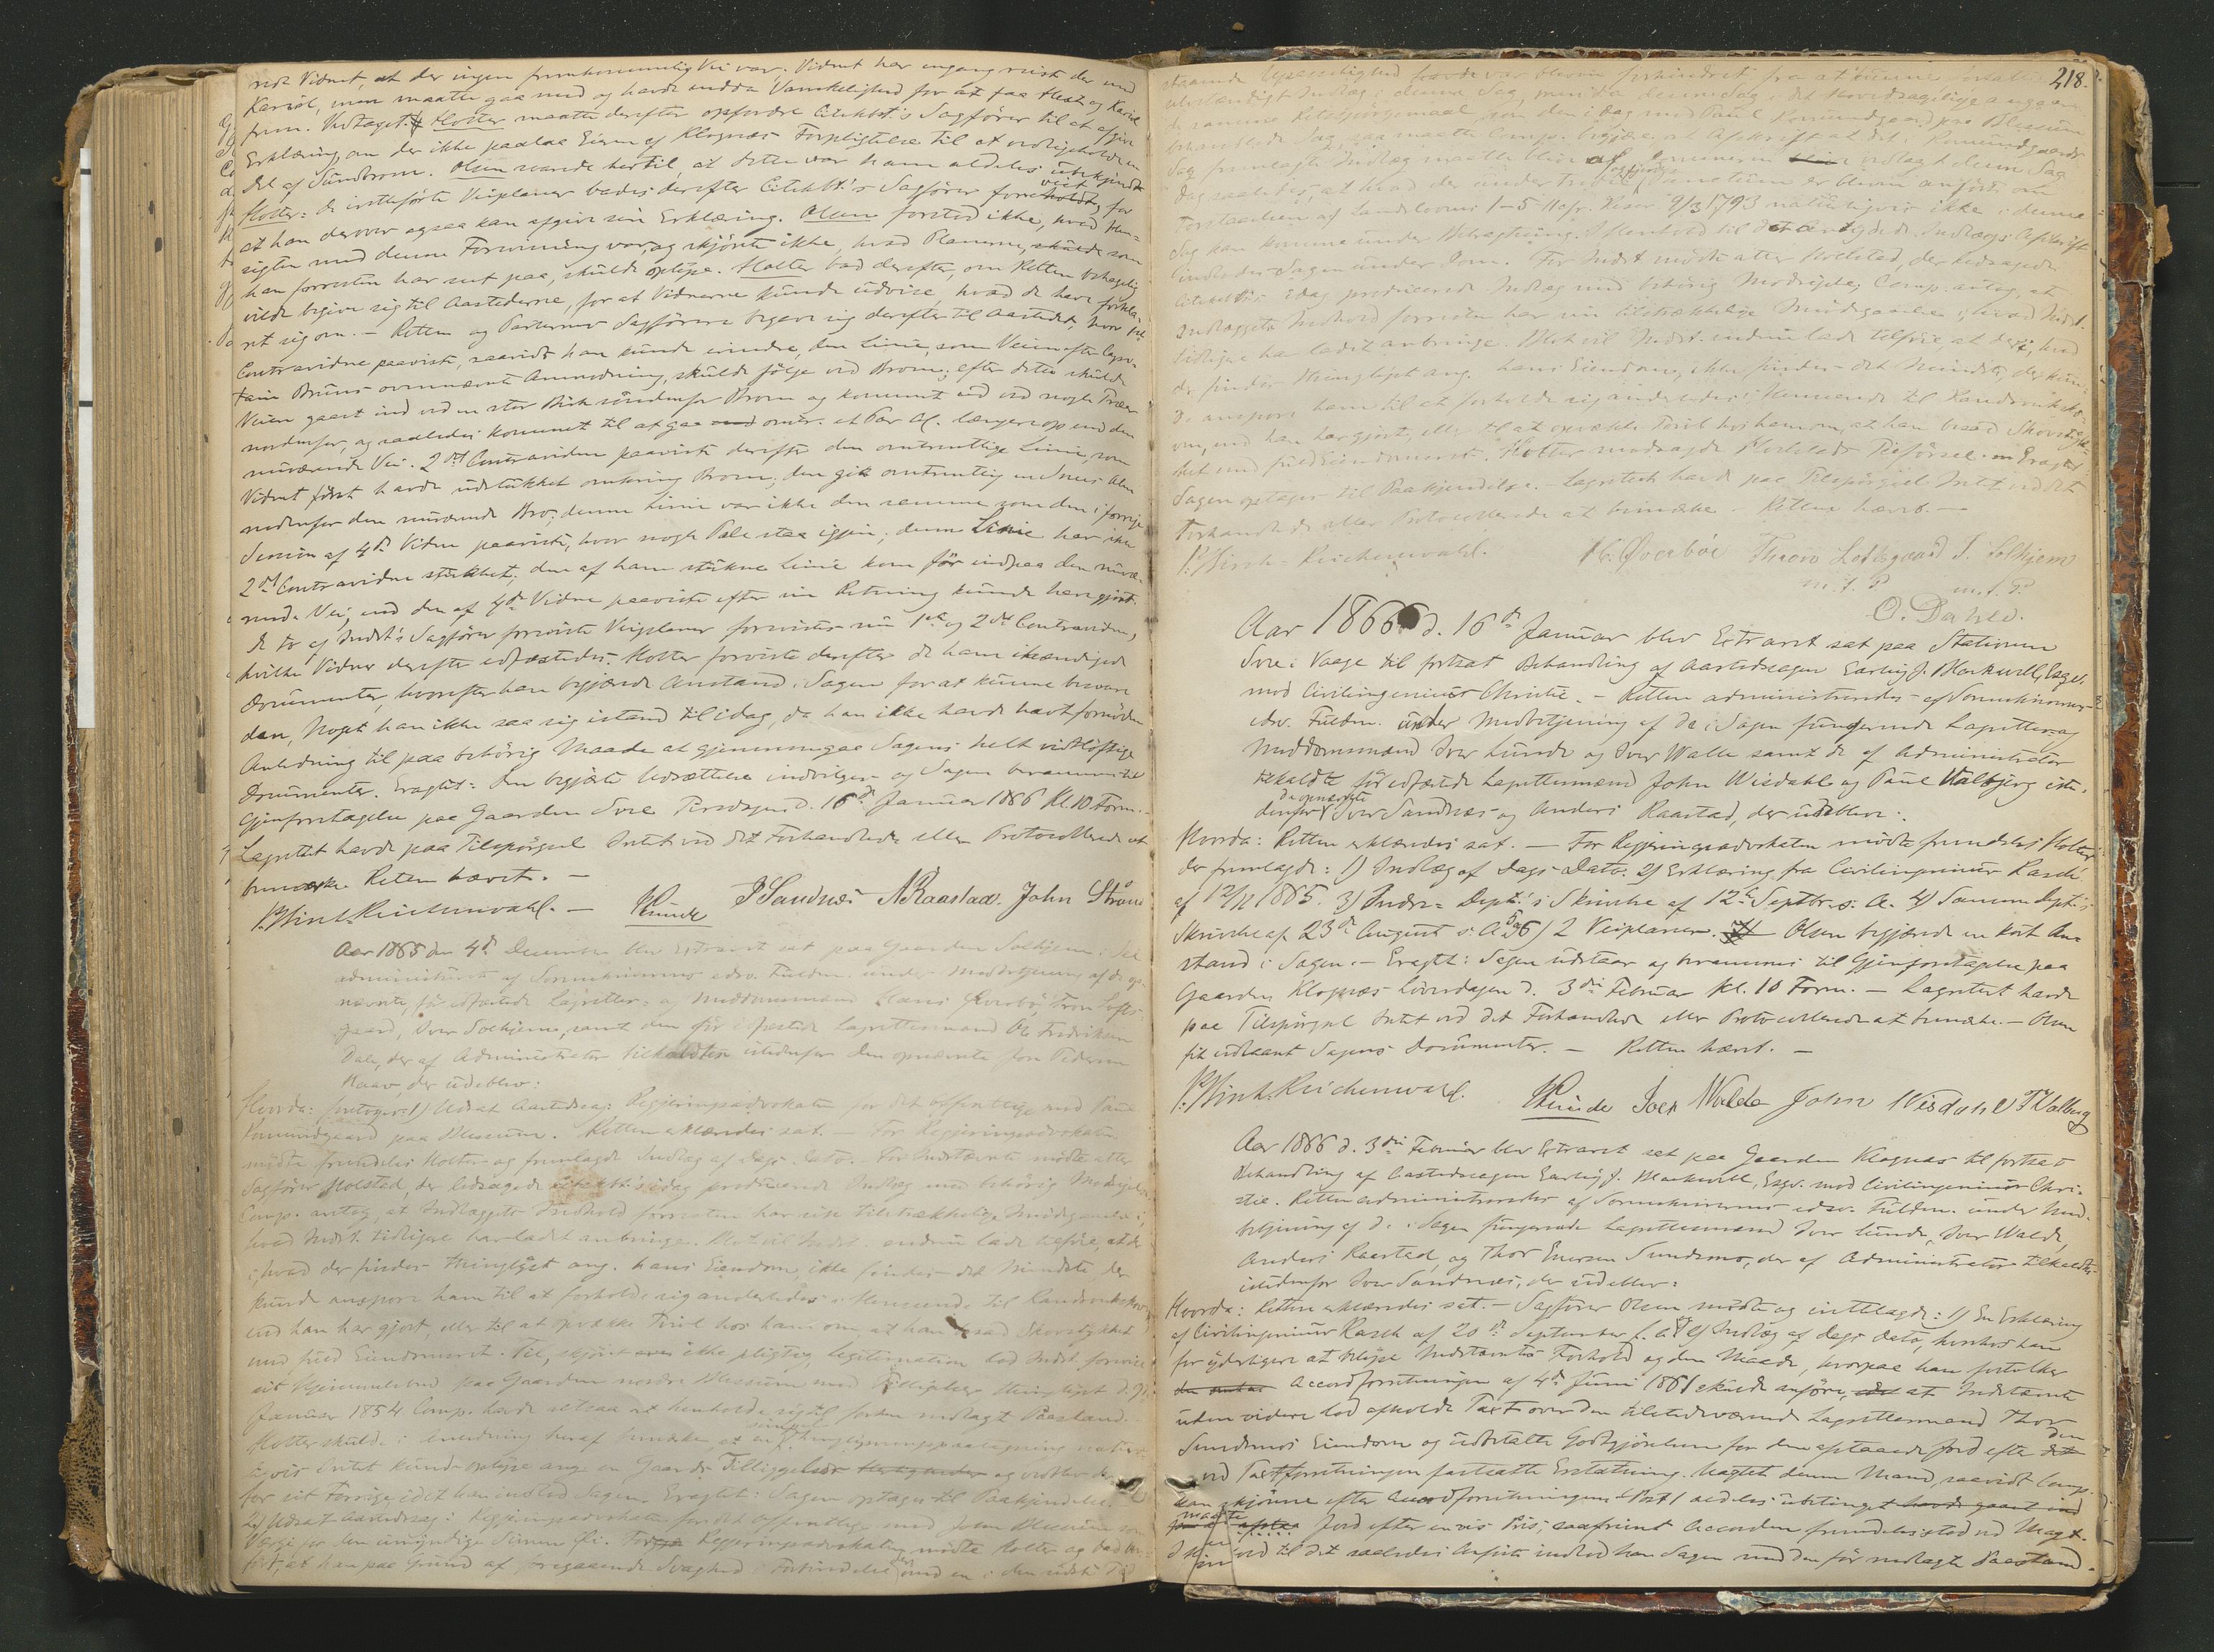 nede Vidnet, at der ingen fremkommelig Vei var; Vidnet har engang reist der med
Kariol, men maatte gaa ned og havde endda Vanskelighed for at faa Hest og Kariol
frem. Vedtaget. Hotter maatte derefter opfordre Citchst.'s Sagfører til at afgive
Erklæring, om der ikke paalaa Eieren af Klognæs Forpligtelse til at vedligeholde en
Del af Sundbroen. Olsen svarede hertil, at dette var ham aldeles ubekjendt
Hotter: de iretteførte Veiplaner bades derefter Citchst.'s Sagfører forevist, for
at han derover ogsaa kan afgive sin Erklæring. Olsen forstod ikke, hvad Hen-
sigten med denne Forevisning var, og skjønte ikke, hvad Planerne, som
han forresten har seet paa, skulde oplyse. Hotter bad derefter, om Retten behagelig
vilde begive sig til Aastederne, for at Vidnerne kunde udvise, hvad de have forkla-
ret sig om. - Retten og Parternes Sagførere begave sig derefter til Aastedet, hvor
Contravidne paaviste, saavidt han kunde erindre, den Linie, som Veien efter Cap-
tain Bruuns ovennævnte Anmodning, skulde følge ved Broen; efter dette skulde
Veien gaaet ind ved en stor Birk søndenfor Broen og kommet ud ved nogle Træer
nordenfor, og saaledes kommet til at gaa omtr. et Par Al. længere op end den
nuværende Vei. 2det Contravidne paaviste derefter den omtrentlige Linie, som
Vidnet først havde udstukket omkring Broen; den gik omtrentlig en Snees Alen
nedenfor den nuværende Bro; denne Linie var ikke den samme som den i forrige
Session af 4de Vidne paaviste, hvor nogle Pæle staa igjen; denne Linie har ikke
2det Contravidne stukket; den af ham stukne Linie kom før indpaa den nuvæ-
rende Vei, end den af 4de Vidne paaviste efter sin Retning kunde have gjort.
De to af Indst's Sagfører foreviste Veiplaner forevistes nu 1ste og 2det Contravidne,
hvilke Vidner derefter edfæstedes. Hotter foreviste derefter de ham ihændigede
Documenter, hvorefter han begjærede Anstand i Sagen for at kunne besvare
dem, Noget han ikke saa sig istand til idag, da han ikke havde havt fornøden
Anledning til paa behørig Maade at gjennemgaae Sagens helt vidtløftige
Documenter. Eragtet: Den begjærte Udsættelse indvilges og Sagen berammes til
Gjenforetagelse paa Gaarden Sve Tirsdagen d. 16de Januar 1866 Kl. 10 Form.
Lagrettet havde paa Tilspørgsel Intet ved det Forhandlede eller Protocollerede at
bemærke. Retten hævet. -
P. Wirsch Reichenwald. - ILunde ISandnes ARaastad. John Strøm
Aar 1865 den 4de December blev Extraret sat paa Gaarden Solhjem i Sel
administreret af Sorenskriverens edsv. Fuldm. under Medbetjening af de op-
nævnte, før edfæstede Lagrettes- og Meddomsmænd Hans Øverbø, Tron Lofts-
gaard, Iver Solhjem, samt den før edfæstede Lagrettesmand Ole Fredriksen
Dale, der af Administrator tilkaldtes istedenfor den opnævnte Jon Pedersen
Raav, der udeblev:
Hvorda: foretoges: 1) Udsat Aastedssag: Regjeringsadvokaten for det offentlige mod Paul
Romundgaard paa Blessum. Retten erklæredes sat. - For Regjeringsadvokaten
mødte fremdeles Hotter og fremlagde Indlæg af Dags Dato. - For Indstævnte mødte atter
Sagfører Holstad, der ledsagede Citchst's idag producerede Indlæg med behørig Modsigelse
Comp. antog, at Indlæggets Indhold forresten har sin tilstrækkelige Imødegaaelse i,
hvad Indst. tidligere har ladet anbringe. Blot vil Indst. endnu lade tilføie, at der
i, hvad der findes thinglyst ang. hans Eiendom, ikke findes det Mindste, der
kunde anspore ham til at forholde sig anderledes i Henseende til Randsvikskov
end han har gjort, eller til at opvække Tvivl hos ham om, at han besad Skovstykket
med fuld Eiendomsret. Til, skjønt ikke pligtig, Legitimation lod Indst. forevise
sit Hjemmelsbrev paa Gaarden nordre Blessum med Tilliggelse thinglyst d. 9de
Januar 1854 Comp. havde altsaa at henholde sig til forhen nedlagt Paastand.
Hotter skulde i Anledning heraf bemærke, at en simpel Thinglysningspaategning natur-
ligvis Intet kunde oplyse ang. en Gaards Tilliggelser og vedblev
for sit Forrige idet han indlod Sagen. Eragtet: Sagen optages til Paakjendelse.
2) Udsat Aastedssag: Regjeringsadvokaten for det offentlige mod John Blessum som
Værge for den umyndige Simen Øi. For Regjeringsadvokaten mødte Hotter og bad an-
ført, at han paa Grund af foregaaende Svaghed i Forbindelse med en i den sidste Tid
218.
staaende Upasselighed havde været bleven forhindret fra at kunne forfatte
udstændigt Indlæg i denne Sag, men da denne Sag i det Hovedsagelige angaar
de samme Retsspørgsmaal som den idag mod Paul Romundgaard paa Blessum
behandlede Sag, saa maatte Comp. begjære en Afskrift af det i Romundgaards
Sag fremlagte Indlæg maatte blive af Comp. vedlagt denne Sag
dog saaledes, at hvad der under
Forstaaelsen af Landslovens 1-5-11 cfr. Rescr. 9/3 1793 naturligvis ikke i denne
Sag kan komme under Betragtning. I Henhold til det antydede Indlægs Afskrift
indlodes Sagen under Dom. For Indst mødte atter Holstad, der ledsagede
Citchst's idag producerede Indlæg med behørig Modsigelse; Comp. antog, at
Indlæggets Indhold forresten har sin tilstrækkelige Imødegaaelse i, hvad Indst.
tidligere har ladet anbringe. Blot vil Indst. endnu lade tilføie, at der i, hvad
der findes thinglyst ang. hans Eiendom, ikke findes det Mindste, der kun-
de anspore ham til at forholde sig anderledes i Henseende til Randsvikskov-
en, end han har gjort, eller til at opvække Tvivl hos ham om, at han besad Skovstyk-
ket med fuld Eiendomsret. Hotter modsagde Holstads Tilførsel. Eragtet
Sagen optages til Paakjendelse. Lagrettet havde paa Tilspørgsel Intet ved det
Forhandlede eller Protocollerede at bemærke. Retten hævet. -
P. Wirsch-Reichenwald. H. Øverbøe Thron Loftsgaard I. Solhjem
m. f. P. m. f. P.
O. Dahle.
Aar 1866 d. 16de Januar blev Extraret sat paa Stationen
Sve i Vaage til fortsat Behandling af Aastedssagen Earling J. Markwell, Esqv.
mod Civilingeniør Christie. - Retten administreredes af Sorenskriverens
edsv. Fuldm. under Medbetjening af de i Sagen fungerende Lagrettes- og
Meddomsmænd Iver Lunde og Iver Walle samt de af Administrator
tilkaldte før edfæstede Lagrettesmænd John Wisdahl og Paul Valbjerg iste-
denfor de opnævnte Iver Sandnæs og Anders Raastad, der udebleve.
Hvorda: Retten erklæredes sat. - For Regjeringsadvokaten mødte fremdeles Hotter
der fremlagde: 1) Indlæg af Dags Dato. 2) Erklæring fra Civilingeniør Rasch
af 12/11 1865. 3) Indre-Dept.'s Skrivelse af 12te Septbr. s. A. 4) Samme Dept.'s
Skrivelse af 23de August s. A. 5 og 6) 2 Veiplaner. Olsen begjærede en kort An-
stand i Sagen. - Eragtet: Sagen udstaar og berammes til Gjenforetagelse paa
Gaarden Klognæs Løverdagen d. 3die Februar Kl. 10 Form. - Lagrettet havde
paa Tilspørgsel Intet ved det Forhandlede eller Protocollerede at bemærke. - Olsen
fik udlaant Sagens Documenter. - Retten hævet. -
P. Wirsch Reichenwald. ILunde Iver Walde John Wisdahl P Walberg
Aar 1866 d. 3die Februar blev Extraret sat paa Gaarden Klognæs til fortsat
Behandling af Aastedssagen Earling J. Markwell, Esqv. mod Civilingeniør Chri-
stie. Retten administreredes af Sorenskriverens edsv. Fuldm. under Med-
betjening af de i Sagen fungerende Lagrettesmænd Iver Lunde, Iver Walde,
Anders Raastad, og Thor Enersen Sundsmo, der af Administrator tilkaldtes
istedenfor Iver Sandnæs, der udeblev:
Hvorda: Retten erklæredes sat. - Sagfører Olsen mødte og irettelagde: 1) En Erklæring
af Civilingeniør Rasch af 20de September f. A. og 2) Indlæg af Dags Dato, hvorhos han
for yderligere at belyse Indstævntes Forhold og den Maade, hvorpaa han fortolker
Accordforretningen af 4de Juni 1861 skulde anføre, at Indstævnte
uden videre lod afholde Taxt over den tilstedeværende Lagrettesmand Thor
Sundsmos Eiendom og udbetalte Godtgjørelsen for den afstaaede Jord efter den
ved Taxtforretningen fastsatte Erstatning. Uagtet denne Mand, saavidt Comp.
kan skjønne efter Accordforretningens Post 1 aldeles ubetinget
maatte Jord efter en vis Pris, saafremt Accorden fremdeles stod ved Magt.
I Henhold til det saaledes Anførte indlod han Sagen med den før nedlagte Paastand.